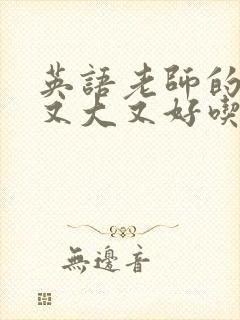 英語老師的
又大又好喫
無邊音